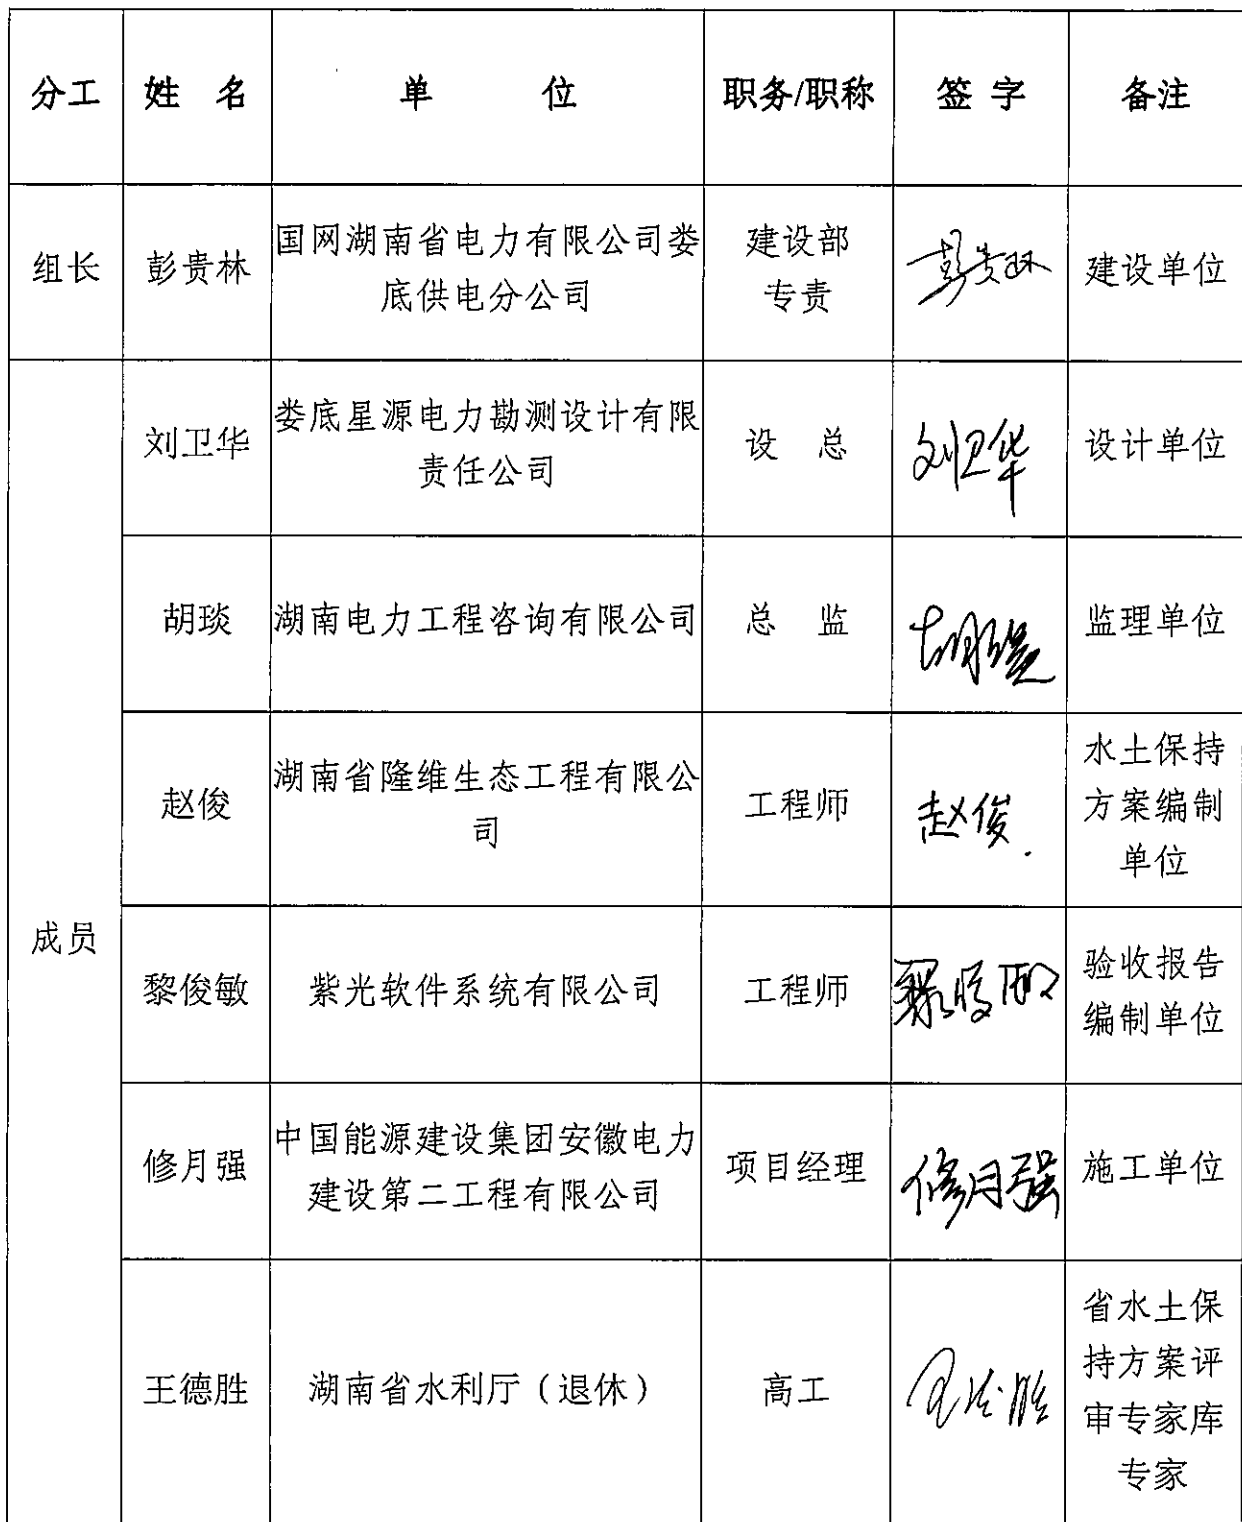 分工 姓 名 单 位 职务/职称 签 字 备注
组长 彭贵林 国网湖南省电力有限公司娄
底供电分公司 建设部
专责 彭贵林 建设单位
成员
刘卫华 娄底星源电力勘测设计有限
责任公司 设 总 刘卫华 设计单位
胡琰 湖南电力工程咨询有限公司 总 监 监理单位
赵俊 湖南省隆维生态工程有限公
司 工程师 赵俊 水土保持
方案编制
单位
黎俊敏 紫光软件系统有限公司 工程师 验收报告
编制单位
修月强 中国能源建设集团安徽电力
建设第二工程有限公司 项目经理 修月强 施工单位
王德胜 湖南省水利厅（退休） 高工 省水土保
持方案评
审专家库
专家